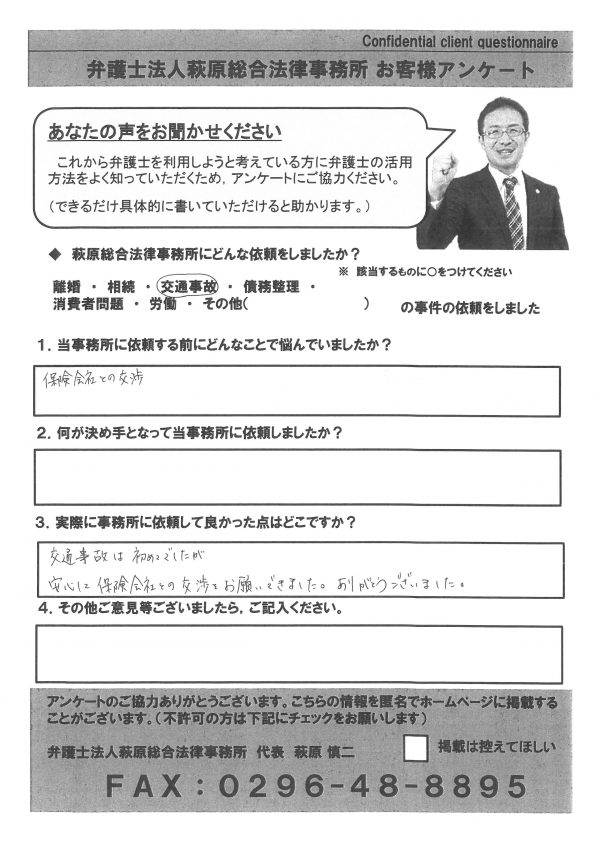 Confidential client questionnaire
弁護士法人萩原総合法律事務所 お客様アンケート
あなたの声をお聞かせください
これから弁護士を利用しようと考えている方に弁護士の活用
方法をよく知っていただくため，アンケートにご協力ください。
（できるだけ具体的に書いていただけると助かります。）
◆ 萩原総合法律事務所にどんな依頼をしましたか？
※ 該当するものに○をつけてください
離婚 ・ 相続 ・ 交通事故 ・ 債務整理 ・
消費者問題 ・ 労働 ・ その他( ) の事件の依頼をしました
１．当事務所に依頼する前にどんなことで悩んでいましたか？
保険会社との交渉
２．何が決め手となって当事務所に依頼しましたか？
３．実際に事務所に依頼して良かった点はどこですか？
交通事故は初めてでしたが
安心して保険会社との交渉をお願いできました。ありがとうございました。
４．その他ご意見等ございましたら，ご記入ください。
アンケートのご協力ありがとうございます。こちらの情報を匿名でホームページに掲載する
ことがございます。（不許可の方は下記にチェックをお願いします）
弁護士法人萩原総合法律事務所 代表 萩原 慎二
掲載は控えてほしい
FAX：0296-48-8895